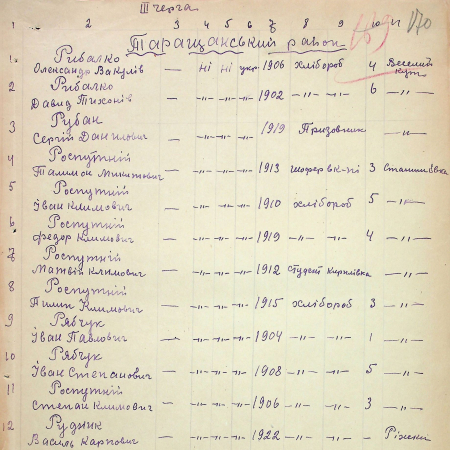 III черга
1 2 3 4 5 6 7 8 9 10 11 170
Таращанський район
1. Рибалко
Олександр Вакулів — ні ні укр. 1906 хлібороб 4 Веселий кут
2 Рибалко
Давид Тихонів — -"- -"- -"- 1902 -"- -"- 6 -"-
3 Рубан
Сергій Данилович — -"- -"- -"- 1919 Призовник -"-
4 Роспутній
Микитович — -"- -"- -"- 1913 шофер 3
5 Роспутній
Іван Климович — -"- -"- -"- 1910 хлібороб 5 -"-
6 Роспутній
Федор Климович — -"- -"- -"- 1919 -"- -"- 4 -"-
7 Роспутній
Матвій Климович — -"- -"- -"- 1912 студент Кирилівка -"-
8 Роспутній
Пилип Климович — -"- -"- -"- 1915 хлібороб 3 -"-
9 Рябчук
Іван Павлович — -"- -"- -"- 1904 -"- -"- 1 -"-
10 Рябчук
Іван Степанович — -"- -"- -"- 1908 -"- -"- 5 -"-
11 Роспутній
Степан Климович — -"- -"- -"- 1906 -"- -"- 3 -"-
12 Рудник
Василь Карпович — -"- -"- -"- 1922 -"- -"- Ріжки